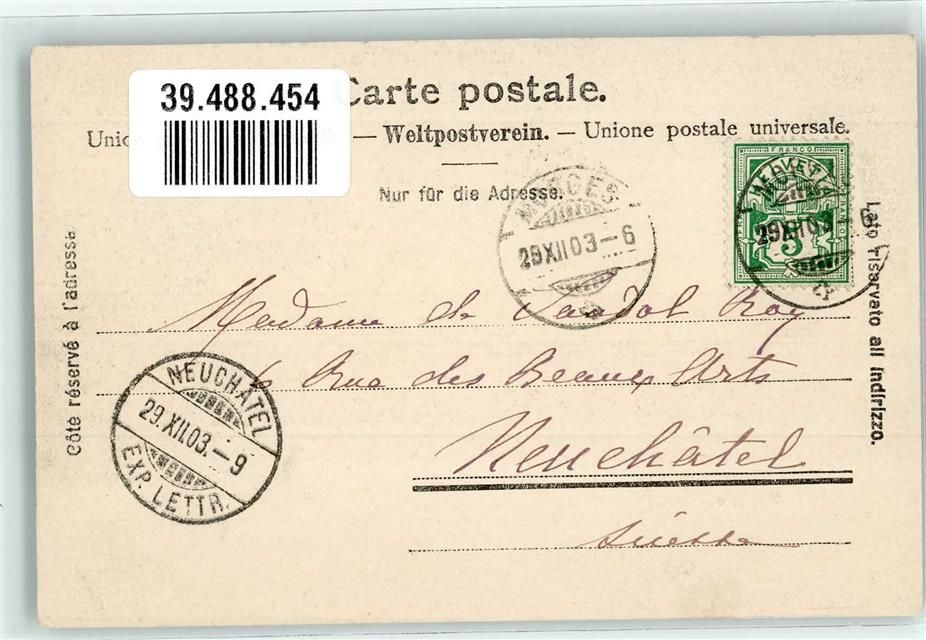 39.488.454
Carte postale.
Unio — Weltpostverein. — Unione postale universale.
Nur für die Adresse.
FRANCO
HELVETIA
5
29 XII 03 – 6
MORGES
29 XII 03 – 6
Côte réservé à l'adresse
Lato riservato all' indirizzo.
Madame de Sandol Roy
6 Rue des Beaux Arts
Neuchâtel
Suisse
NEUCHATEL
29. XII. 03. – 9
EXP. LETTR.